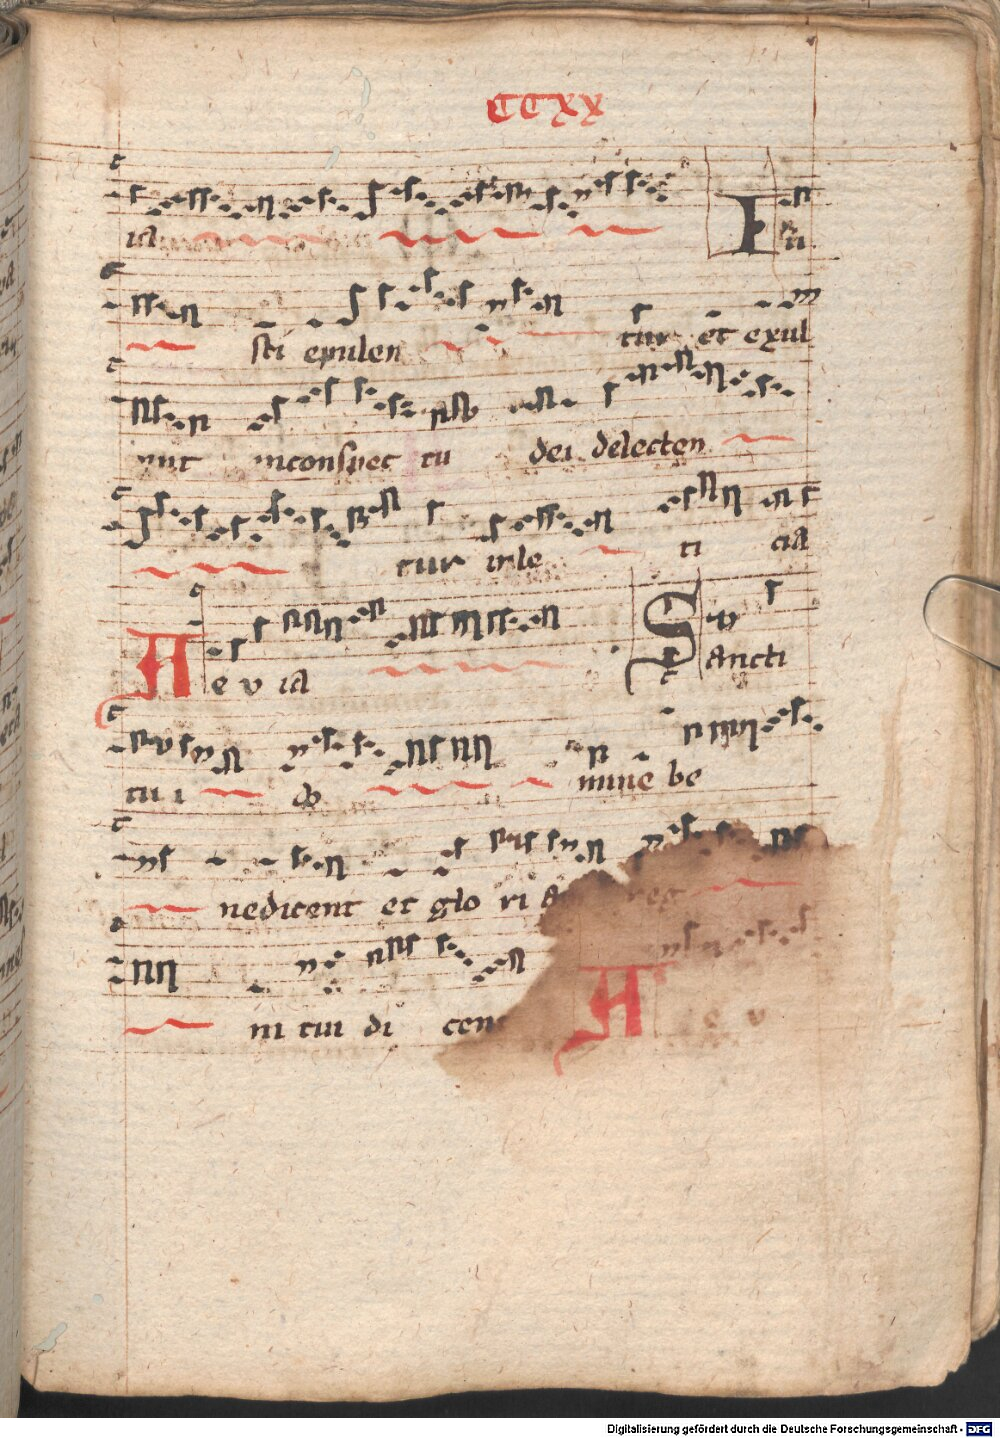 CCXX
ia I u
sti epulen tur et exul
tent inconspec tu dei delecten
tur inle ti cia
A e v ia Sancti
tu i dn̄e be
nedicent et glo ri am reg
ni tui di cent A e v
Digitalisierung gefördert durch die Deutsche Forschungsgemeinschaft - DFG